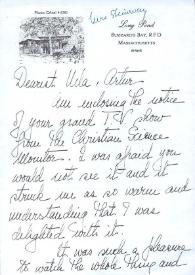 Long Road
BUZZARDS BAY, R.F.D
MASSACHUSETTS
Dearest Vela, Artur
am enclosing the notice
of your grand T.V. show
from the Christian Science
Monitor. I was afraid you
would not see it and it
struck me as so warm and
understanding that I was
delighted with it.
It was such a pleasure
to watch the whole thing and